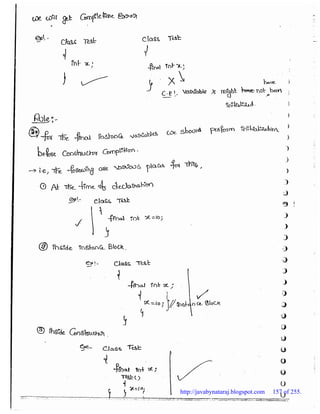 we will get Compiletime Error
Eg:- class Test class Test
{ {
int x; final int x;
} }
C.E:- variable x might not have been
initialized.
Rule:-
for the final instance variables we should perform initialization
before constructor Completion.
→ i.e, the following are various places for this,
① At the time of declaration
Eg:- class Test
{
final int x=10;
}
② Inside instance Block.
Eg:- class Test
{
final int x;
{
x=10; } // instance Block
}
③ Inside Constructor.
Eg:- class Test
{
final int x;
Test()
{ x=10;
} }
http://javabynataraj.blogspot.com 157 of 255.